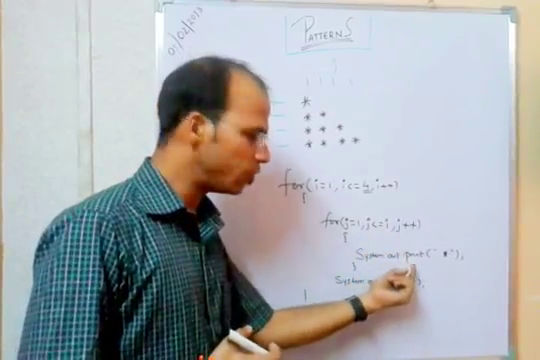 01/02/2013
PATTERNS
*
* *
* * *
* * * *
for(i=1, i<=4, i++)
{
for(j=1, j<=i, j++)
{
System.out.print(" *");
}
System
);